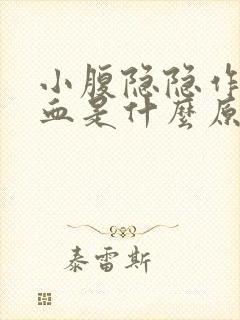 小腹隐隐作
血是什麼原
泰雷斯